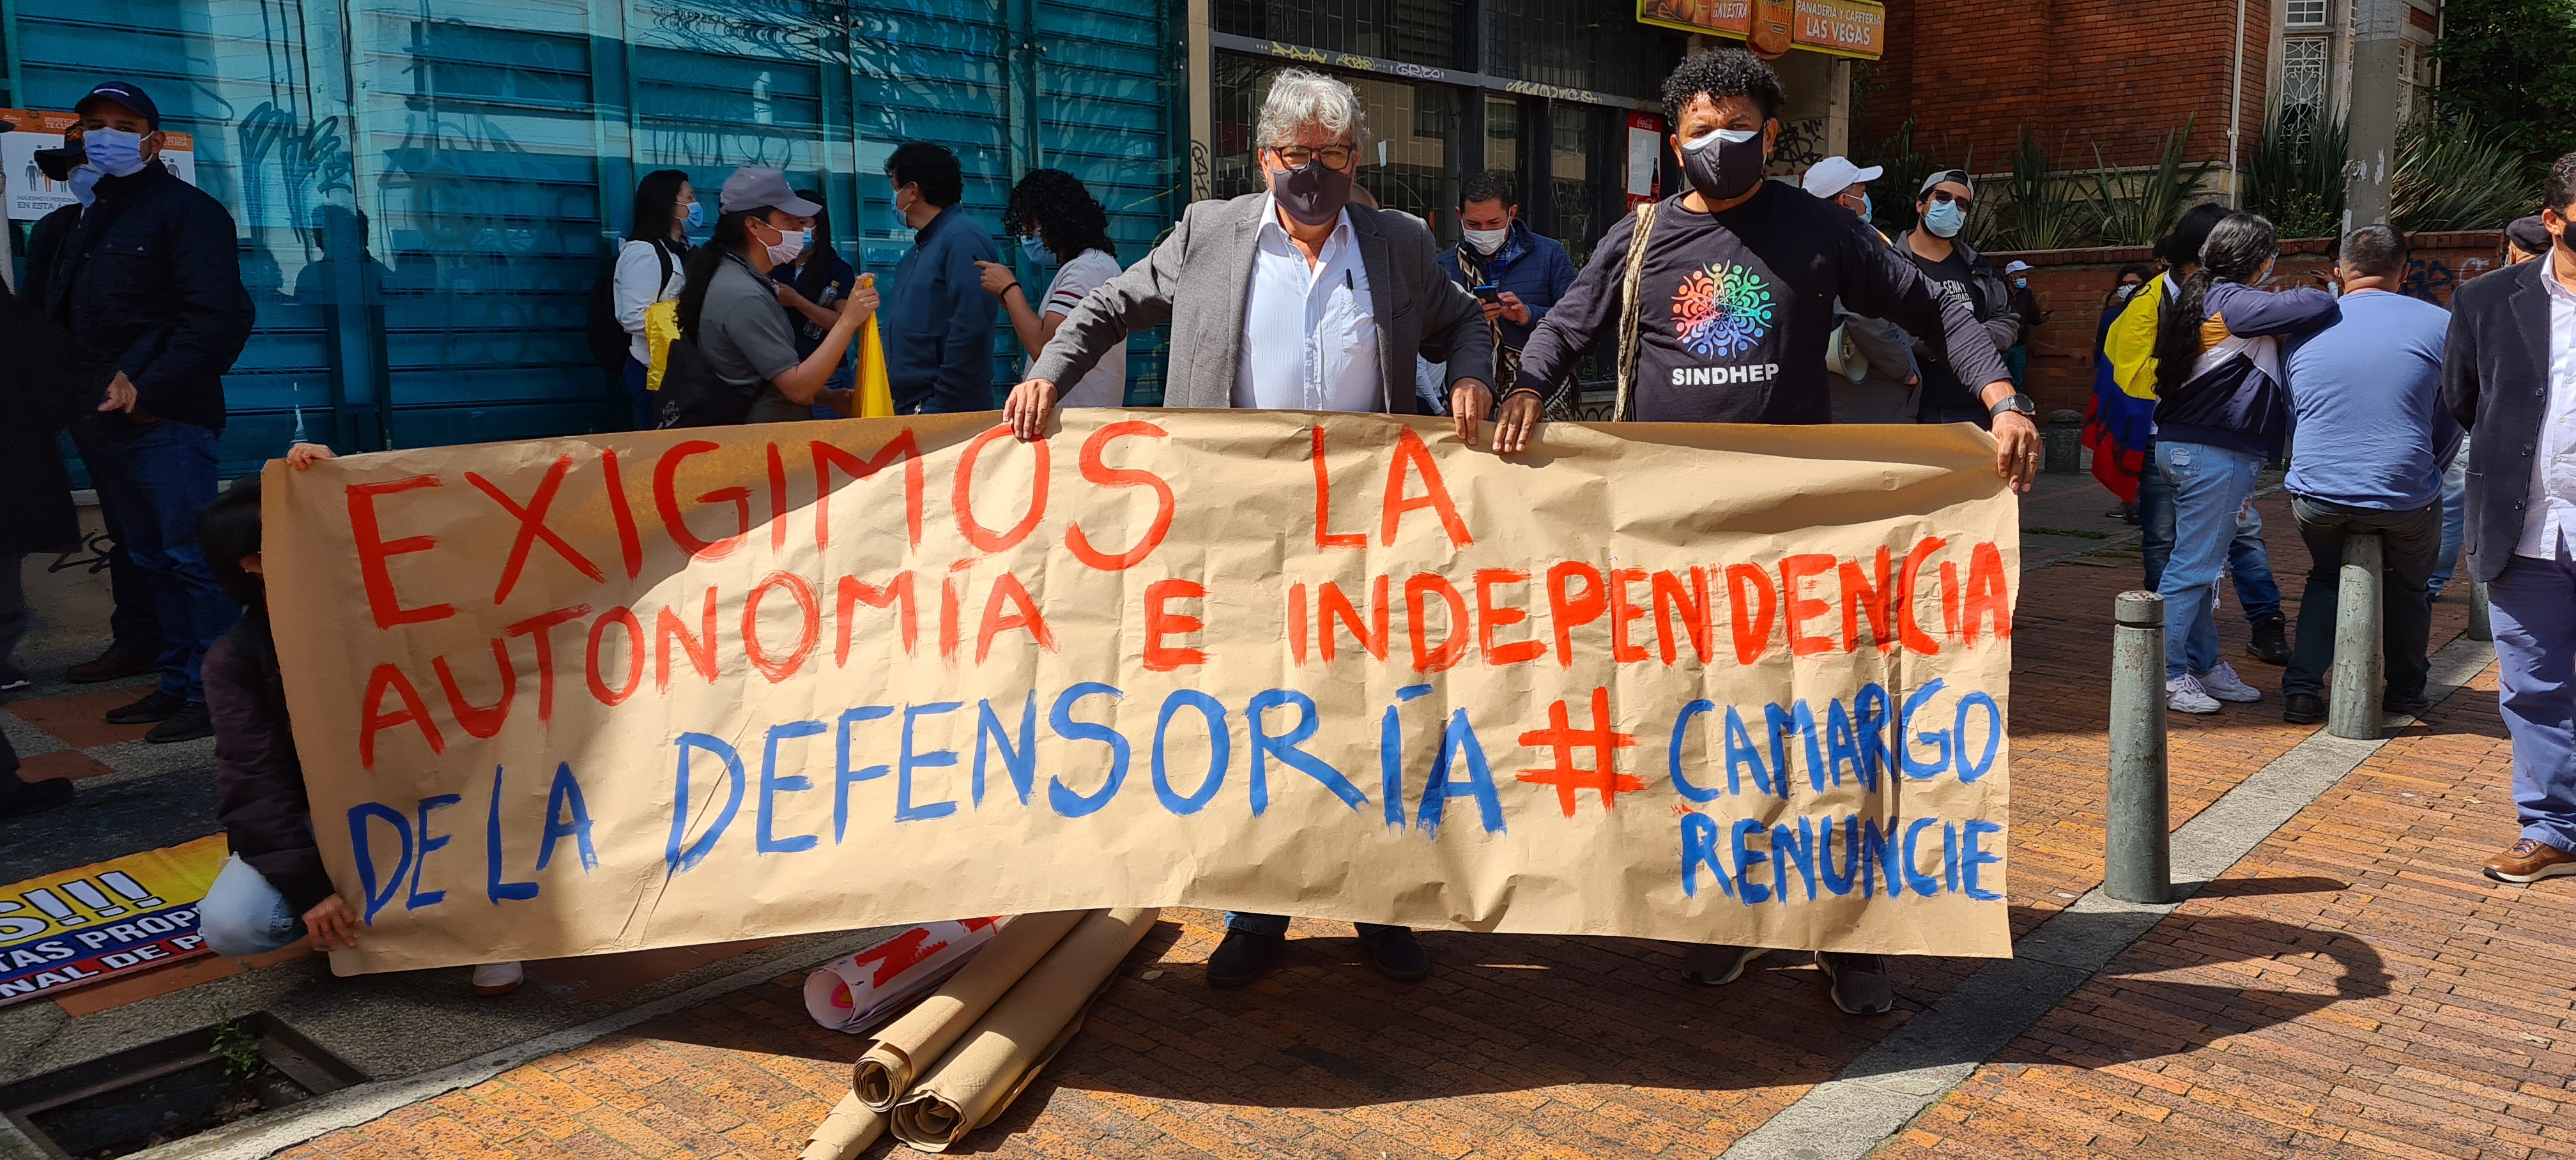 EXIGIMOS LA
AUTONOMÍA E INDEPENDENCIA
DE LA DEFENSORÍA # CAMARGO
RENUNCIE
SINDHEP
PANADERIA Y CAFETERIA
LAS VEGAS
NUESTRA
EN ESTA
S!!!
NAL DE